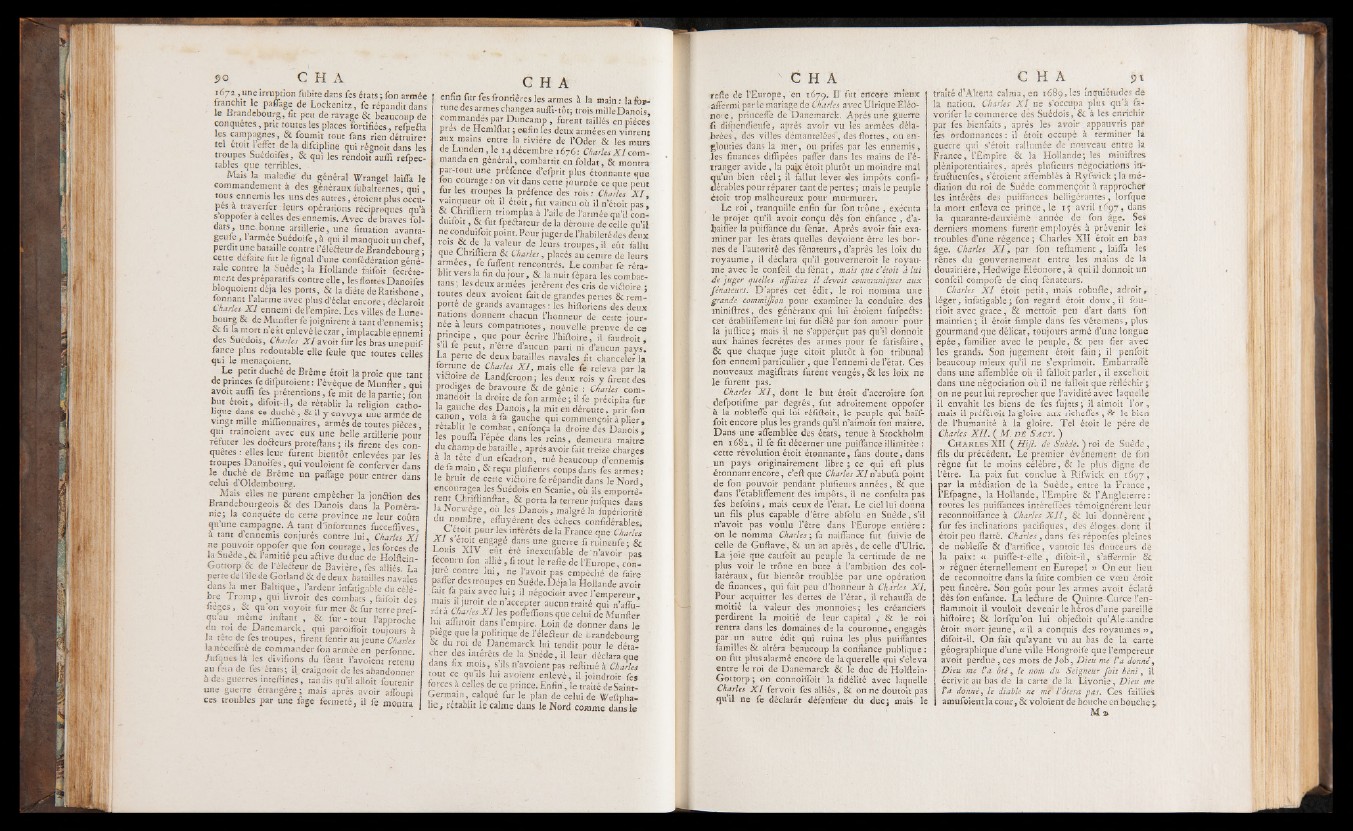 90 C H A
1672, une irruption subite dans ses états; son armée
franchit le passage de Lockenitz, se répandit dans
le Brandebourg, fit peu de ravage & beaucoup de
conquêtes, prit toutes les places fortifiées, respecta
les campagnes, & soumit tout sans rien détruire:
tel étoit l'effet de la discipline qui régnoit dans les
troupes Suédoises, & qui les rendoit aussi respec-
tables que terribles.
Mais la maladie du général Wrangel laissa le
commandement à des généraux subalternes, qui,
tous ennemis les uns des autres, étoient plus occu-
pés à traverser leurs opérations réciproques qu'à
s'opposer à celles des ennemis. Avec de braves sol-
dats, une bonne artillerie, une situation avanta-
geuse, l'armée Suédoise, à qui il manquoit un chef,
perdit une bataille contre l'électeur de Brandebourg;
cette défaite fut le signal d'une confédération géné-
rale contre la Suède; la Hollande faisoit secrète-
ment des préparatifs contre elle, les flottes Danoises
bloquoient déja les ports, & la diète de Ratisbone,
sonnant l'alarme avec plus d'éclat encore, déclaroit
Charles XI ennemi de l'empire. Les villes de Lune-
bourg & de Munster se joignirent à tant d'ennemis;
& si la mort n'eût enlevé le czar, implacable ennemi
des Suédois, Charles XI avoit sur les bras une puis-
sance plus redoutable elle seule que toutes celles
qui le menaçoient.
Le petit duché de Brême étoit la proie que tant
de princes se disputoient: l'évêque de Munster, qui
avoit aussi ses prétentions, se mit de la partie; son
but étoit, disoit-il, de rétablir la religion catho-
lique dans ce duché, & il y envoya une armée de
vingt mille missionnaires, armés de toutes pièces,
qui traînoient avec eux une belle artillerie pour
réfuter les docteurs protestans; ils firent des con-
quêtes: elles leur furent bientôt enlevées par les
troupes Danoises, qui vouloient se conserver dans
le duché de Brême un passage pour entrer dans
celui d'Oldembourg.
Mais elles ne purent empêcher la jonction des
Brandebourgeois & des Danois dans la Poméra-
nie; la conquête de cette province ne leur coûta
qu'une campagne. A tant d'infortunes successives,
à tant d'ennemis conjurés contre lui, Charles XI
ne pouvoit opposer que son courage, les forces de
la Suède, & l'amitié peu active du duc de Holstein-
Gottorp & de l'électeur de Bavière, ses alliés. La
perte de l'île de Gotland & de deux batailles navales
dans la mer Baltique, l'ardeur infatigable du célè-
bre Tromp, qui livroit des combats, faisoit des
sièges, & qu'on voyoit sur mer & sur terre pres-
qu'au même instant, & sur-tout l'approche
du roi de Danemarck, qui paroissoit toujours à
la tête de ses troupes, firent sentir au jeune Charles
la nécessité de commander son armée en personne.
Jusques là les divisions du sénat l'avoient retenu
au sein de ses états; il craignoit de les abandonner
à des guerres intestines, tandis qu'il alloit soutenir
une guerre étrangère; mais après avoir assoupi
ces troubles par une sage fermeté, il se montra
C H A
enfin sur ses frontières les armes à la main: la for-
tune des armes changea aussi-tôt; trois mille Danois,
commandés par Duncamp, furent taillés en pièces
près de Hemlstat; enfin ses deux armées en vinrent
aux mains entre la rivière de l'Oder & les murs
de Lunden, le 14 décembre 1676: Charles XI com-
manda en général, combattit en soldat, & montra
par-tout une présence d'esprit plus étonnante que
son courage: on vit dans cette journée ce que peut
sur les troupes la présence des rois: Charles XI,
vainqueur où il étoit, fut vaincu où il n'étoit pas,
& Christiern triompha à l'aîle de l'armée qu'il con-
duisoit, & fut spectateur de la déroute de celle qu'il
ne conduisoit point. Pour juger de l'habileté des deux
rois & de la valeur de leurs troupes, il eût fallu
que Christiern & Charles, placés au centre de leurs
armées, se fussent rencontrés. Le combat se réta-
blit vers la fin du jour, & la nuit sépara les combat-
tans; les deux armées jetèrent des cris de victoire;
toutes deux avoient fait de grandes pertes & rem-
porté de grands avantages: les historiens des deux
nations donnent chacun l'honneur de cette jour-
née à leurs compatriotes, nouvelle preuve de ce
principe, que pour écrire l'histoire, il faudroit,
s'il se peut, n'être d'aucun parti ni d'aucun pays.
La perte de deux batailles navales fit chanceler la
fortune de Charles XI, mais elle se releva par la
victoire de Landscron; les deux rois y firent des
prodiges de bravoure & de génie: Charles com-
mandoit la droite de son armée; il se précipita sur
la gauche des Danois, la mit en déroute, prit son
canon, vola à sa gauche qui commençoit à plier,
rétablit le combat, enfonça la droite des Danois,
les poussa l'épée dans les reins, demeura maître
du champ de bataille, après avoir fait treize charges
à la tête d'un escadron, tué beaucoup d'ennemis
de sa main, & reçu plusieurs coups dans ses armes:
le bruit de cette victoire se répandit dans le Nord,
encouragea les Suédois en Scanie, où ils emporté-
rent Christianstat, & porta la terreur jusques dans
la Norwège, où les Danois, malgré la supériorité
du nombre, essuyérent des échecs considérables.
C'étoit pour les intérêts de la France que Charles
XI s'étoit engagé dans une guerre si ruineuse; &
Louis XIV eût été inexcusable de n'avoir pas
secouru son allié, si tout le reste de l'Europe, con-
juré contre lui, ne l'avoit pas empêché de faire
passer des troupes en Suède. Déja la Hollande avoit
fait sa paix avec lui; il négocioit avec l'empereur,
mais il juroit de n'accepter aucun traité qui n'assu-
rât à Charles XI les possessions que celui de Munster
lui assuroit dans l'empire. Loin de donner dans le
piège que la politique de l'électeur de Brandebourg
& du roi de Danemarck lui tendit pour le déta-
cher des intérêts de la Suède, il leur déclara que
dans six mois, s'ils n'avoient pas restitué à Charles
tout ce qu'ils lui avoient enlevé, il joindroit ses
forces à celles de ce prince. Enfin, le traité de Saint-
Germain, calqué sur le plan de celui de Westpha-
lie, rétablit le calme dans le Nord comme dans le
C H A
reste de l'Europe, en 1679. Il fut encore mieux
affermi par le mariage de Charles avec Ulrique Eléo-
nore, princesse de Danemarck. Après une guerre
si dispendieuse, après avoir vu les armées déla-
brées, des villes démantelées, des flottes, ou en-
glouties dans la mer, ou prises par les ennemis,
les finances dissipées passer dans les mains de l'é-
tranger avide, la paix étoit plutôt un moindre mal
qu'un bien réel; il fallut lever des impôts consi-
dérables pour réparer tant de pertes; mais le peuple
étoit trop malheureux pour murmurer.
Le roi, tranquille enfin sur son trône, exécuta
le projet qu'il avoit conçu dès son enfance, d'a-
baisser la puissance du sénat. Après avoir fait exa-
miner par les états quelles devoient être les bor-
nes de l'autorité des sénateurs, d'après les loix du
royaume, il déclara qu'il gouverneroit le royau-
me avec le conseil du sénat, mais que c'étoit à lui
de juger quelles affaires il devoit communiquer aux
sénateurs. D'après cet édit, le roi nomma une
grande commission pour examiner la conduite des
ministres, des généraux qui lui étoient suspects:
cet établissement lui fut dicté par son amour pour
la justice; mais il ne s'apperçut pas qu'il donnoit
aux haines secrètes des armes pour se satisfaire,
& que chaque juge citoit plutôt à son tribunal
son ennemi particulier, que l'ennemi de l'état. Ces
nouveaux magistrats furent vengés, & les loix ne
le furent pas.
Charles XI, dont le but étoit d'accroître son
despotisme par degrés, sut adroitement opposer
à la noblesse qui lui résistoit, le peuple qui haïs-
soit encore plus les grands qu'il n'aimoit son maître.
Dans une assemblée des états, tenue à Stockholm
en 1682, il se fit décerner une puissance illimitée:
cette révolution étoit étonnante, sans doute, dans
un pays originairement libre; ce qui est plus
étonnant encore, c'est que Charles XI n'abusa point
de son pouvoir pendant plusieurs années, & que
dans l'établissement des impôts, il ne consulta pas
ses besoins, mais ceux de l'état. Le ciel lui donna
un fils plus capable d'être absolu en Suède, s'il
n'avoit pas voulu l'être dans l'Europe entière:
on le nomma Charles; sa naissance fut suivie de
celle de Gustave, & un an après, de celle d'Ulric.
La joie que causoit au peuple la certitude de ne
plus voir le trône en bute à l'ambition des col-
latéraux, fut bientôt troublée par une opération
de finances, qui fait peu d'honneur à Charles XI.
Pour acquitter les dettes de l'état, il rehaussa de
moitié la valeur des monnoies; les créanciers
perdirent la moitié de leur capital, & le roi
rentra dans les domaines de la couronne, engagés
par un autre édit qui ruina les plus puissantes
familles & altéra beaucoup la confiance publique:
on fut plus alarmé encore de la querelle qui s'éleva
entre le roi de Danemarck & le duc de Holstein-
Gottorp; on connoissoit la fidélité avec laquelle
Charles XI servoit ses alliés, & on ne doutoit pas
qu'il ne se déclarât défenseur du duc; mais le
C H A 91
traité d'Altena calma, en 1689, les inquiétudes de
la nation. Charles XI ne s'occupa plus qu'à fa-
voriser le commerce des Suédois, & à les enrichir
par ses bienfaits, après les avoir appauvris par
ses ordonnances: il étoit occupé à terminer la
guerre qui s'étoit rallumée de nouveau entre la
France, l'Empire & la Hollande; les ministres
plénipotentiaires, après plusieurs négociations in-
fructueuses, s'étoient assemblés à Ryswick; la mé-
diation du roi de Suède commençoit à rapprocher
les intérêts des puissances belligérantes, lorsque
la mort enleva ce prince, le 15 avril 1697, dans
la quarante-deuxième année de son âge. Ses
derniers momens furent employés à prévenir les
troubles d'une régence; Charles XII étoit en bas
âge. Charles XI, par son testament, laissa les
rênes du gouvernement entre les mains de la
douairière, Hedwige Eléonore, à qui il donnoit un
conseil composé de cinq sénateurs.
Charles XI étoit petit, mais robuste, adroit,
léger, infatigable; son regard étoit doux, il sou-
rioit avec grace, & mettoit peu d'art dans son
maintien; il étoit simple dans ses vêtemens, plus
gourmand que délicat, toujours armé d'une longue
épée, familier avec le peuple, & peu fier avec
les grands. Son jugement étoit sain; il pensoit
beaucoup mieux qu'il ne s'exprimoit. Embarrassé
dans une assemblée où il falloit parler, il excelloit
dans une négociation où il ne falloit que réfléchir;
on ne peut lui reprocher que l'avidité avec laquelle
il envahit les biens de ses sujets; il aimoit l'or,
mais il préféroit la gloire aux richesses, & le bien
de l'humanité à la gloire. Tel étoit le père de
Charles XII. ( M. DE SACY. )
CHARLES XII ( Hist. de Suède. ) roi de Suède,
fils du précédent. Le premier événement de son
règne fut le moins célèbre, & le plus digne de
l'être. La paix fut conclue à Riswick en 1697,
par la médiation de la Suède, entre la France,
l'Espagne, la Hollande, l'Empire & l'Angleterre:
toutes les puissances intéressées témoignérent leur
reconnoissance à Charles XII, & lui donnérent,
sur ses inclinations pacifiques, des éloges dont il
étoit peu flatté. Charles, dans ses réponses pleines
de noblesse & d'artifice, vantoit les douceurs de
la paix: « puisse-t-elle, disoit-il, s'affermir &
» régner éternellement en Europe! » On eut lieu
de reconnoître dans la suite combien ce vœu étoit
peu sincère. Son goût pour les armes avoit éclaté
dès son enfance. La lecture de Quinte-Curce l'en-
flammoit il vouloit devenir le héros d'une pareille
histoire; & lorsqu'on lui objectoit qu'Alexandre
étoit mort jeune, « il a conquis des royaumes »,
disoit-il. On sait qu'ayant vu au bas de la carte
géographique d'une ville Hongroise que l'empereur
avoit perdue, ces mots de Job, Dieu me l'a donné,
Dieu me l'a ôté, le nom du Seigneur soit béni, il
écrivit au bas de la carte de la Livonie, Dieu me
l'a donné, le diable ne me l'ôtera pas. Ces saillies
amusoient la cour, & voloient de bouche en bouche;
M 2